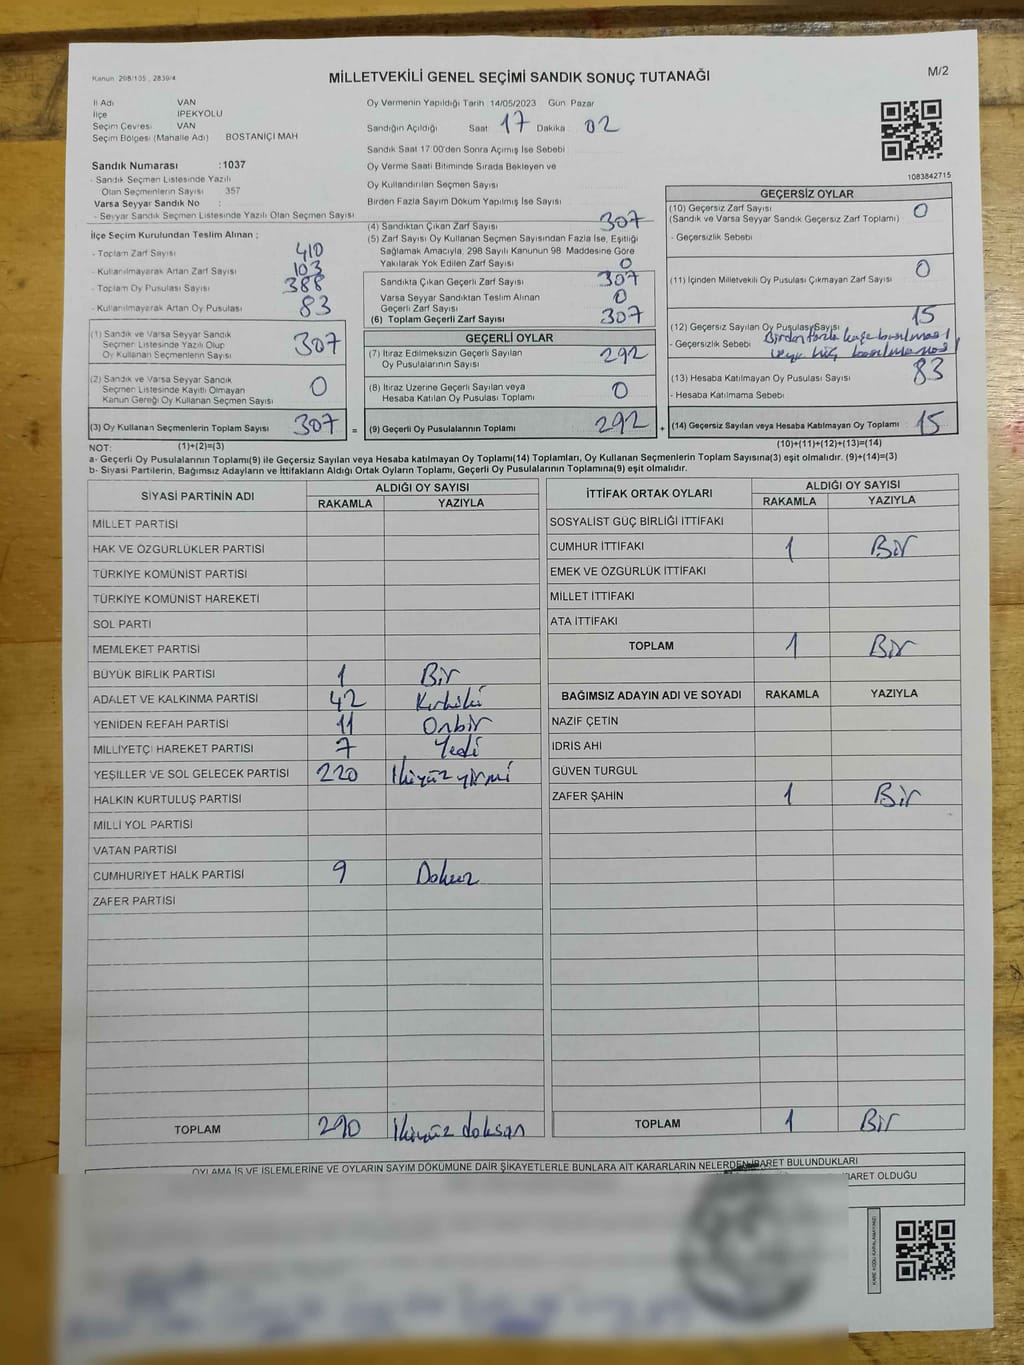 Kanun 298/105 , 2839/4
MİLLETVEKİLİ GENEL SEÇİMİ SANDIK SONUÇ TUTANAĞI
M/2
İl Adı VAN
İlçe İPEKYOLU
Seçim Çevresi VAN
Seçim Bölgesi (Mahalle Adı) BOSTANİÇİ MAH
Sandık Numarası :1037
- Sandık Seçmen Listesinde Yazılı
Olan Seçmenlerin Sayısı 357
Varsa Seyyar Sandık No :
- Seyyar Sandık Seçmen Listesinde Yazılı Olan Seçmen Sayısı
Oy Vermenin Yapıldığı Tarih 14/05/2023 Gün Pazar
Sandığın Açıldığı Saat 17 Dakika 02
Sandık Saat 17:00'den Sonra Açımış İse Sebebi
Oy Verme Saati Bitiminde Sırada Bekleyen ve
Oy Kullandırılan Seçmen Sayısı
Birden Fazla Sayım Döküm Yapılmış İse Sayısı
1083842715
İlçe Seçim Kurulundan Teslim Alınan ;
- Toplam Zarf Sayısı 410
- Kullanılmayarak Artan Zarf Sayısı 103
- Toplam Oy Pusulası Sayısı 388
- Kullanılmayarak Artan Oy Pusulası 83
(1) Sandık ve Varsa Seyyar Sandık
Seçmen Listesinde Yazılı Olup
Oy Kullanan Seçmenlerin Sayısı 307
(2) Sandık ve Varsa Seyyar Sandık
Seçmen Listesinde Kayıtlı Olmayan
Kanun Gereği Oy Kullanan Seçmen Sayısı 0
(3) Oy Kullanan Seçmenlerin Toplam Sayısı 307 =
(4) Sandıktan Çıkan Zarf Sayısı 307
(5) Zarf Sayısı Oy Kullanan Seçmen Sayısından Fazla İse, Eşitliği
Sağlamak Amacıyla, 298 Sayılı Kanunun 98 Maddesine Göre
Yakılarak Yok Edilen Zarf Sayısı 0
Sandıkta Çıkan Geçerli Zarf Sayısı 307
Varsa Seyyar Sandıktan Teslim Alınan
Geçerli Zarf Sayısı 0
(6) Toplam Geçerli Zarf Sayısı 307
GEÇERLİ OYLAR
(7) İtiraz Edilmeksizin Geçerli Sayılan
Oy Pusulalarının Sayısı 292
(8) İtiraz Üzerine Geçerli Sayılan veya
Hesaba Katılan Oy Pusulası Toplamı 0
(9) Geçerli Oy Pusulalarının Toplamı 292 +
GEÇERSİZ OYLAR
(10) Geçersiz Zarf Sayısı 0
(Sandık ve Varsa Seyyar Sandık Geçersiz Zarf Toplamı)
- Geçersizlik Sebebi
(11) İçinden Milletvekili Oy Pusulası Çıkmayan Zarf Sayısı 0
(12) Geçersiz Sayılan Oy Pusulası Sayısı 15
- Geçersizlik Sebebi Birden fazla kaşe basılması
veya hiç basılmaması
(13) Hesaba Katılmayan Oy Pusulası Sayısı 83
- Hesaba Katılmama Sebebi
(14) Geçersiz Sayılan veya Hesaba Katılmayan Oy Toplamı 15
NOT: (1)+(2)=(3) (10)+(11)+(12)+(13)=(14)
a- Geçerli Oy Pusulalarının Toplamı(9) ile Geçersiz Sayılan veya Hesaba katılmayan Oy Toplamı(14) Toplamları, Oy Kullanan Seçmenlerin Toplam Sayısına(3) eşit olmalıdır. (9)+(14)=(3)
b- Siyasi Partilerin, Bağımsız Adayların ve İttifakların Aldığı Ortak Oyların Toplamı, Geçerli Oy Pusulalarının Toplamına(9) eşit olmalıdır.
SİYASİ PARTİNİN ADI ALDIĞI OY SAYISI
RAKAMLA YAZIYLA
MİLLET PARTİSİ
HAK VE ÖZGÜRLÜKLER PARTİSİ
TÜRKİYE KOMÜNİST PARTİSİ
TÜRKİYE KOMÜNİST HAREKETİ
SOL PARTİ
MEMLEKET PARTİSİ
BÜYÜK BİRLİK PARTİSİ 1 Bir
ADALET VE KALKINMA PARTİSİ 42 Kırkiki
YENİDEN REFAH PARTİSİ 11 Onbir
MİLLİYETÇİ HAREKET PARTİSİ 7 Yedi
YEŞİLLER VE SOL GELECEK PARTİSİ 220 İkiyüz yirmi
HALKIN KURTULUŞ PARTİSİ
MİLLİ YOL PARTİSİ
VATAN PARTİSİ
CUMHURİYET HALK PARTİSİ 9 Dokuz
ZAFER PARTİSİ
TOPLAM 290 İkiyüz doksan
İTTİFAK ORTAK OYLARI ALDIĞI OY SAYISI
RAKAMLA YAZIYLA
SOSYALİST GÜÇ BİRLİĞİ İTTİFAKI
CUMHUR İTTİFAKI 1 Bir
EMEK VE ÖZGÜRLÜK İTTİFAKI
MİLLET İTTİFAKI
ATA İTTİFAKI
TOPLAM 1 Bir
BAĞIMSIZ ADAYIN ADI VE SOYADI RAKAMLA YAZIYLA
NAZİF ÇETİN
İDRİS AHİ
GÜVEN TURGUL
ZAFER ŞAHİN 1 Bir
TOPLAM 1 Bir
OYLAMA İŞ VE İŞLEMLERİNE VE OYLARIN SAYIM DÖKÜMÜNE DAİR ŞİKAYETLERLE BUNLARA AİT KARARLARIN NELERDEN İBARET BULUNDUKLARI
İBARET OLDUĞU
KARE KODU KARALAMAYINIZ!